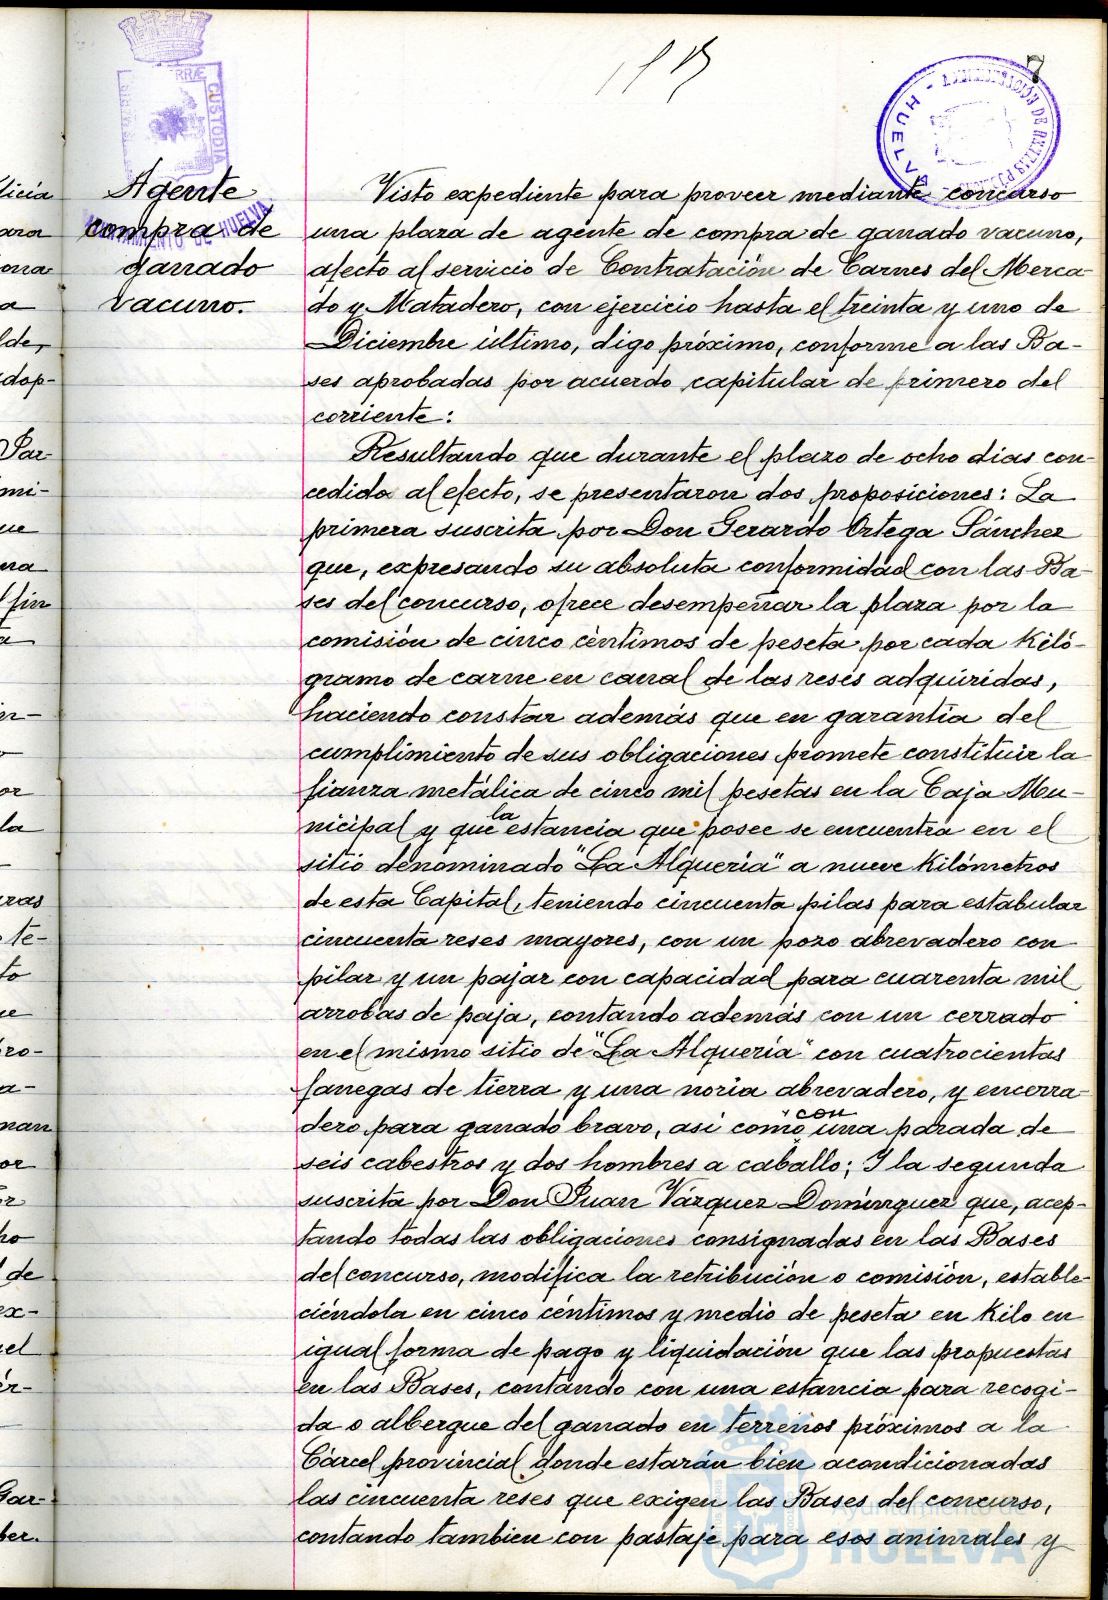 7
ADMINISTRACIÓN DE RENTAS
HUELVA
CUSTODIA
AYUNTAMIENTO DE HUELVA
Agente
compra de
ganado
vacuno.
Visto expediente para proveer mediante concurso
una plaza de agente de compra de ganado vacuno,
afecto al servicio de Contratación de Carnes del Merca-
do y Matadero, con ejercicio hasta el treinta y uno de
Diciembre último, digo próximo, conforme a las Ba-
ses aprobadas por acuerdo capitular de primero del
corriente:
Resultando que durante el plazo de ocho dias con-
cedido al efecto, se presentaron dos proposiciones: La
primera suscrita por Don Gerardo Ortega Sánchez
que, expresando su absoluta conformidad con las Ba-
ses del concurso, ofrece desempeñar la plaza por la
comisión de cinco céntimos de peseta por cada Kiló-
gramo de carne en canal de las reses adquiridas,
haciendo constar además que en garantia del
cumplimiento de sus obligaciones promete constituir la
fianza metálica de cinco mil pesetas en la Caja Mu-
nicipal y que la estancia que posee se encuentra en el
sitio denominado "La Alqueria" a nueve Kilómetros
de esta Capital, teniendo cincuenta pilas para estabular
cincuenta reses mayores, con un pozo abrevadero con
pilar y un pajar con capacidad para cuarenta mil
arrobas de paja, contando además con un cerrado
en el mismo sitio de "La Alqueria" con cuatrocientas
fanegas de tierra y una noria abrevadero, y encerra-
dero para ganado bravo, asi como con una parada de
seis cabestros y dos hombres a caballo; Y la segunda
suscrita por Don Juan Vázquez Dominguez que, acep-
tando todas las obligaciones consignadas en las Bases
del concurso, modifica la retribución o comisión, estable-
ciéndola en cinco céntimos y medio de peseta en Kilo en
igual forma de pago y liquidación que las propuestas
en las Bases, contando con una estancia para recogi-
da o albergue del ganado en terrenos próximos a la
Cárcel provincial donde estarán bien acondicionadas
las cincuenta reses que exigen las Bases del concurso,
contando tambien con pastaje para esos animales y
Ayuntamiento de
HUELVA